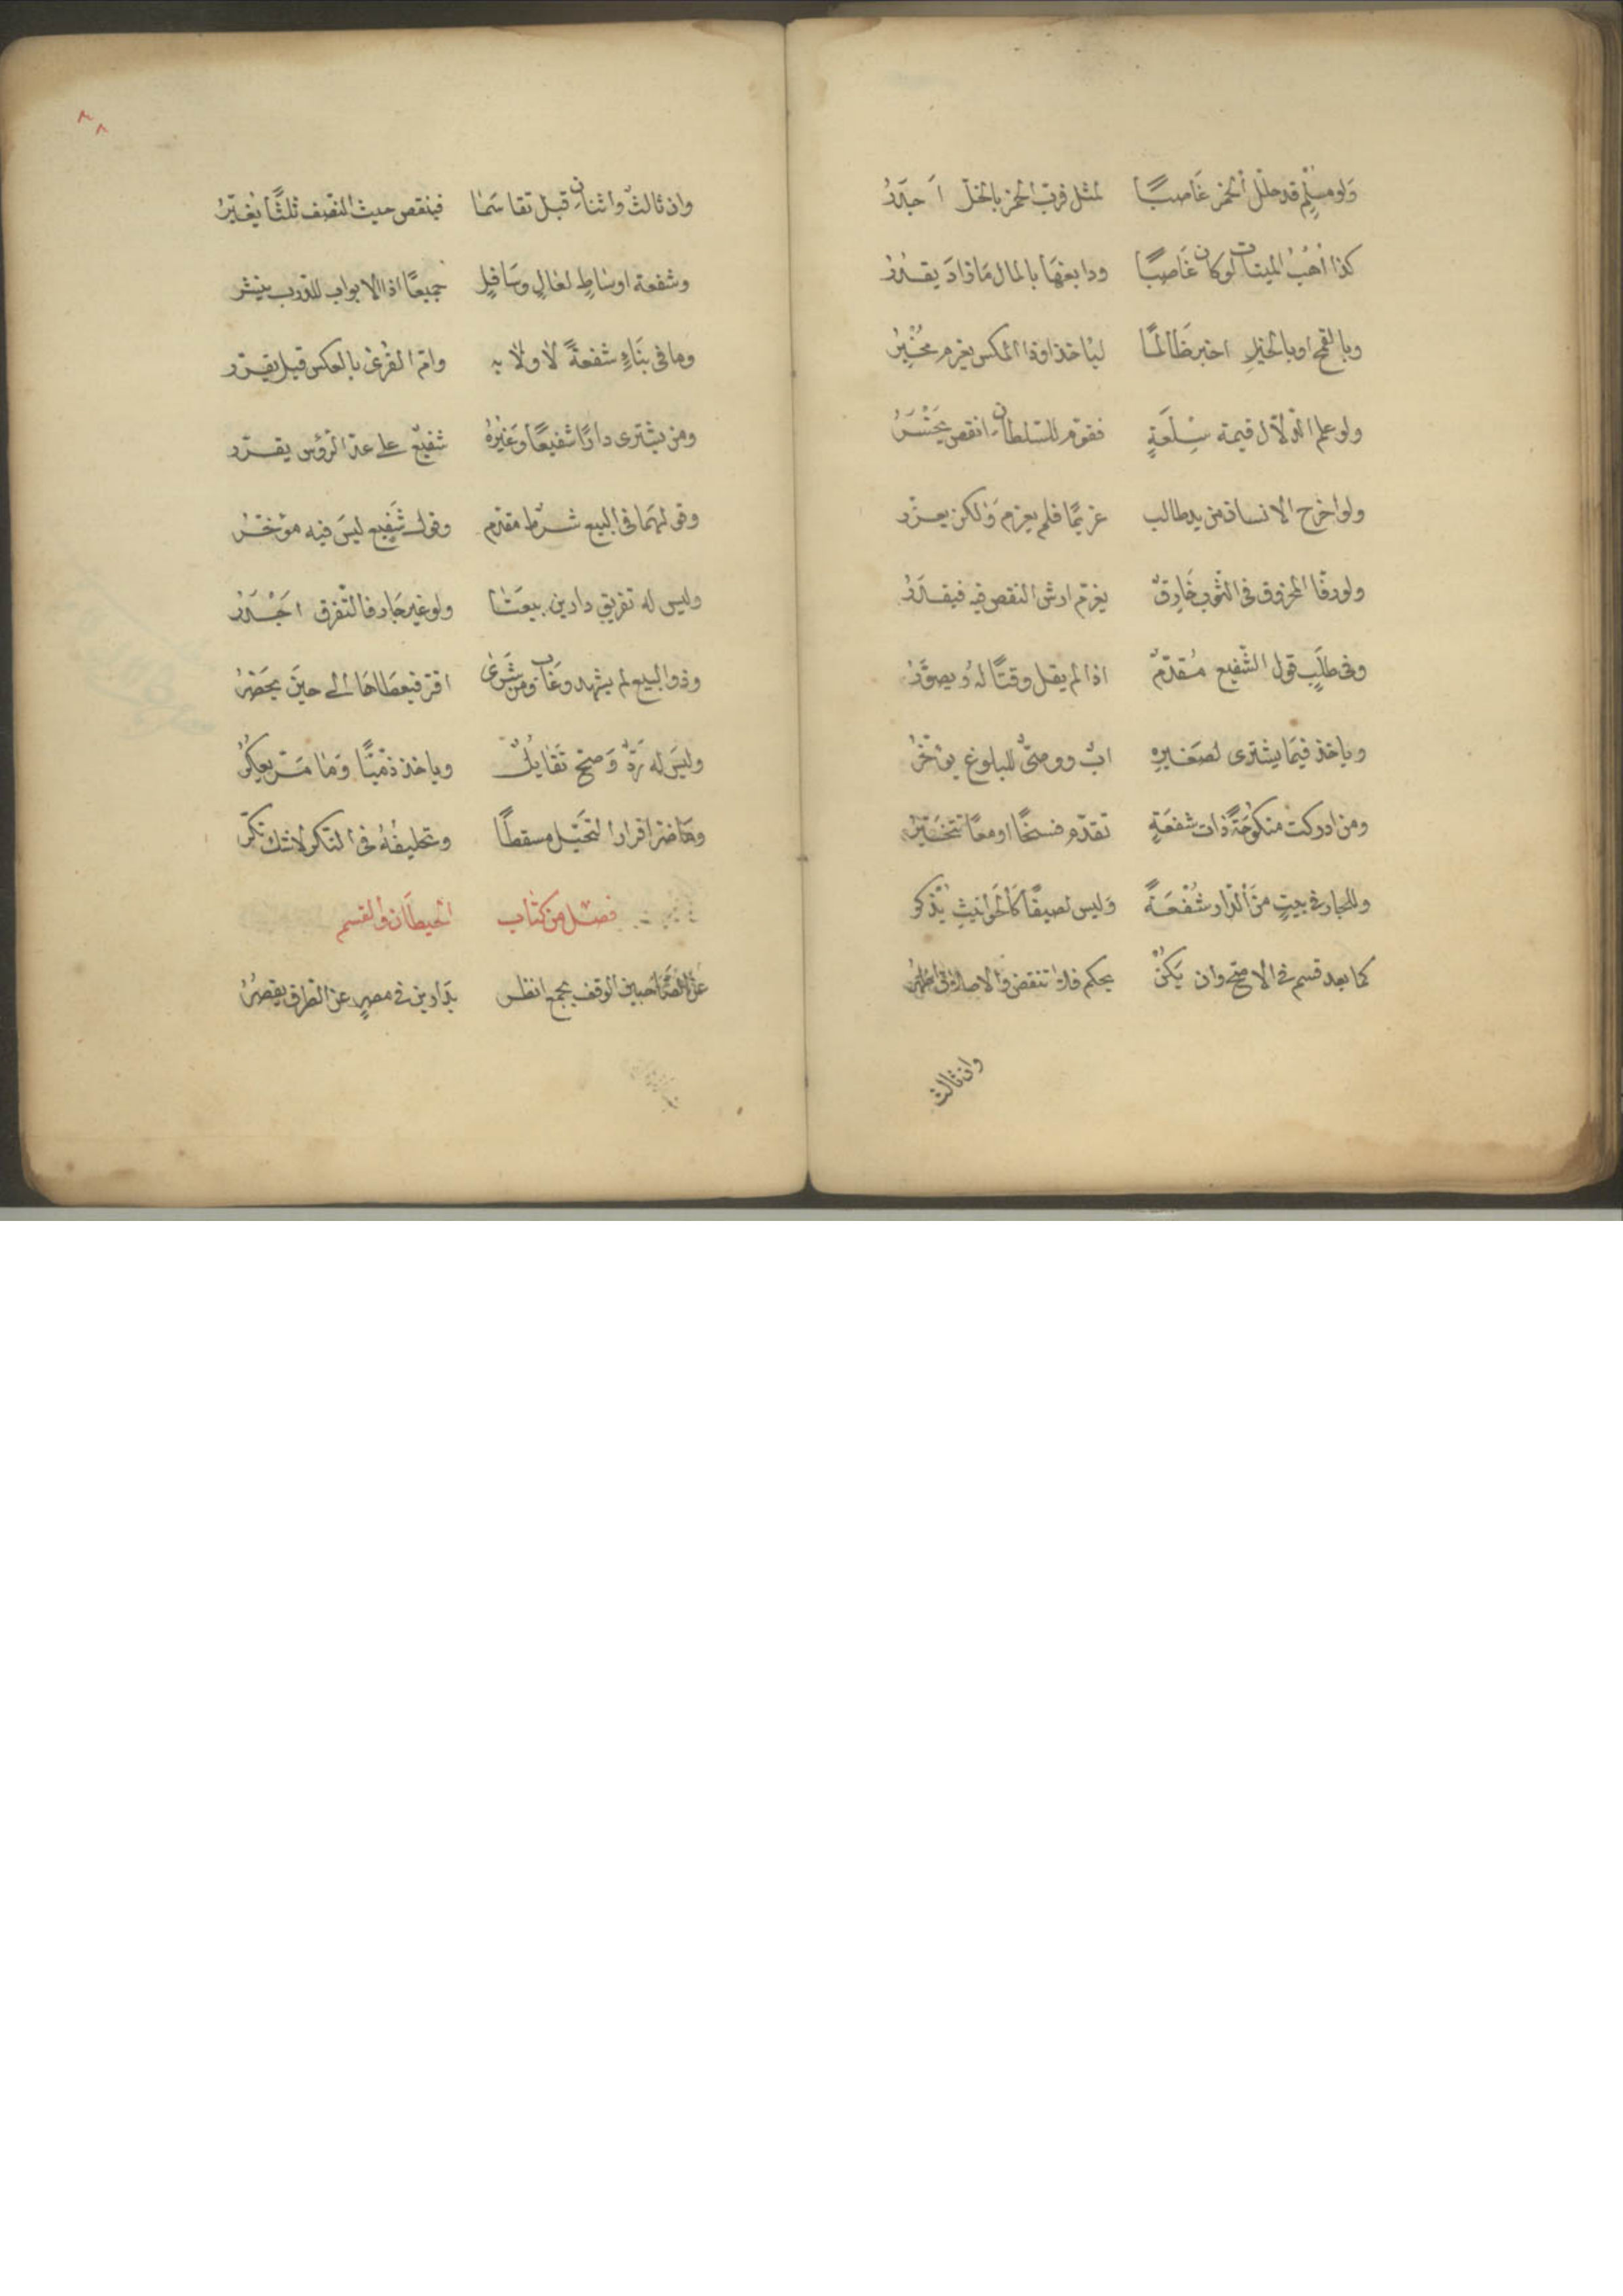 ولو مسلم قد خلل الخمر غاصبا لمثل فرب الخمر بالخل اجدر
كذا أهب الميتات لو كان غاصبا ودابغها بالمال مازاد يقدر
وبالقمح او بالخيل اخبر ظالما ليأخذ او ذا المكس يغرم مخبر
ولو علم الدلال قيمة سلعة فقوم للسلطان انقص يخسر
ولو اخرج الانسان من يد طالب غريما فلم يغرم ولكن يعزر
ولو رفا المخروق في الثوب خارق يغرم ارش النقص فيه فيقدر
وفي طلب قول الشفيع مقدم اذا لم يقل وقتا له ويصور
وياخذ فيما يشترى لصغيره اب ووصي للبلوغ يؤخر
ومن ادركت منكوحة ذات شفعة تقدم فسخا او معا تتخير
وللجار في بيت من الدار شفعة وليس لصيقا كالحوانيت يذكر
كما بعد قسم في الاصح وان يكن بحكم فلا تنقض والاطلاق اظهر
وان ثالث
٨٨
وان ثالث واثنان قبل تقاسما فينقص حيث النصف ثلثا يغير
وشفعة اوساط لعال وسافل جميعا اذا الابواب للدرب ينشر
وما في بناء شفعة لا ولا به وام القرى بالعكس قيل يقرر
ومن يشترى دارا شفيعا وغيره شفيع على عد الرؤس يقرر
وقولهما في البيع شرط مقدم وقول شفيع ليس فيه مؤخر
وليس له تفريق دارين بيعتا ولو غير جار فالتفرق اجدر
وذو البيع لم يشهد وغاب ومن شرى اقر فيعطاها الى حين يحضر
وليس له رد وصح تقايل وياخذ ذميا وما مر يعكر
وما ضر اقرارا لتحيل مسقطا وتحليفه في النكر لا شك نكر
فصل من كتاب الحيطان والقسم
بدارين في مصر عن الطرق يقصر